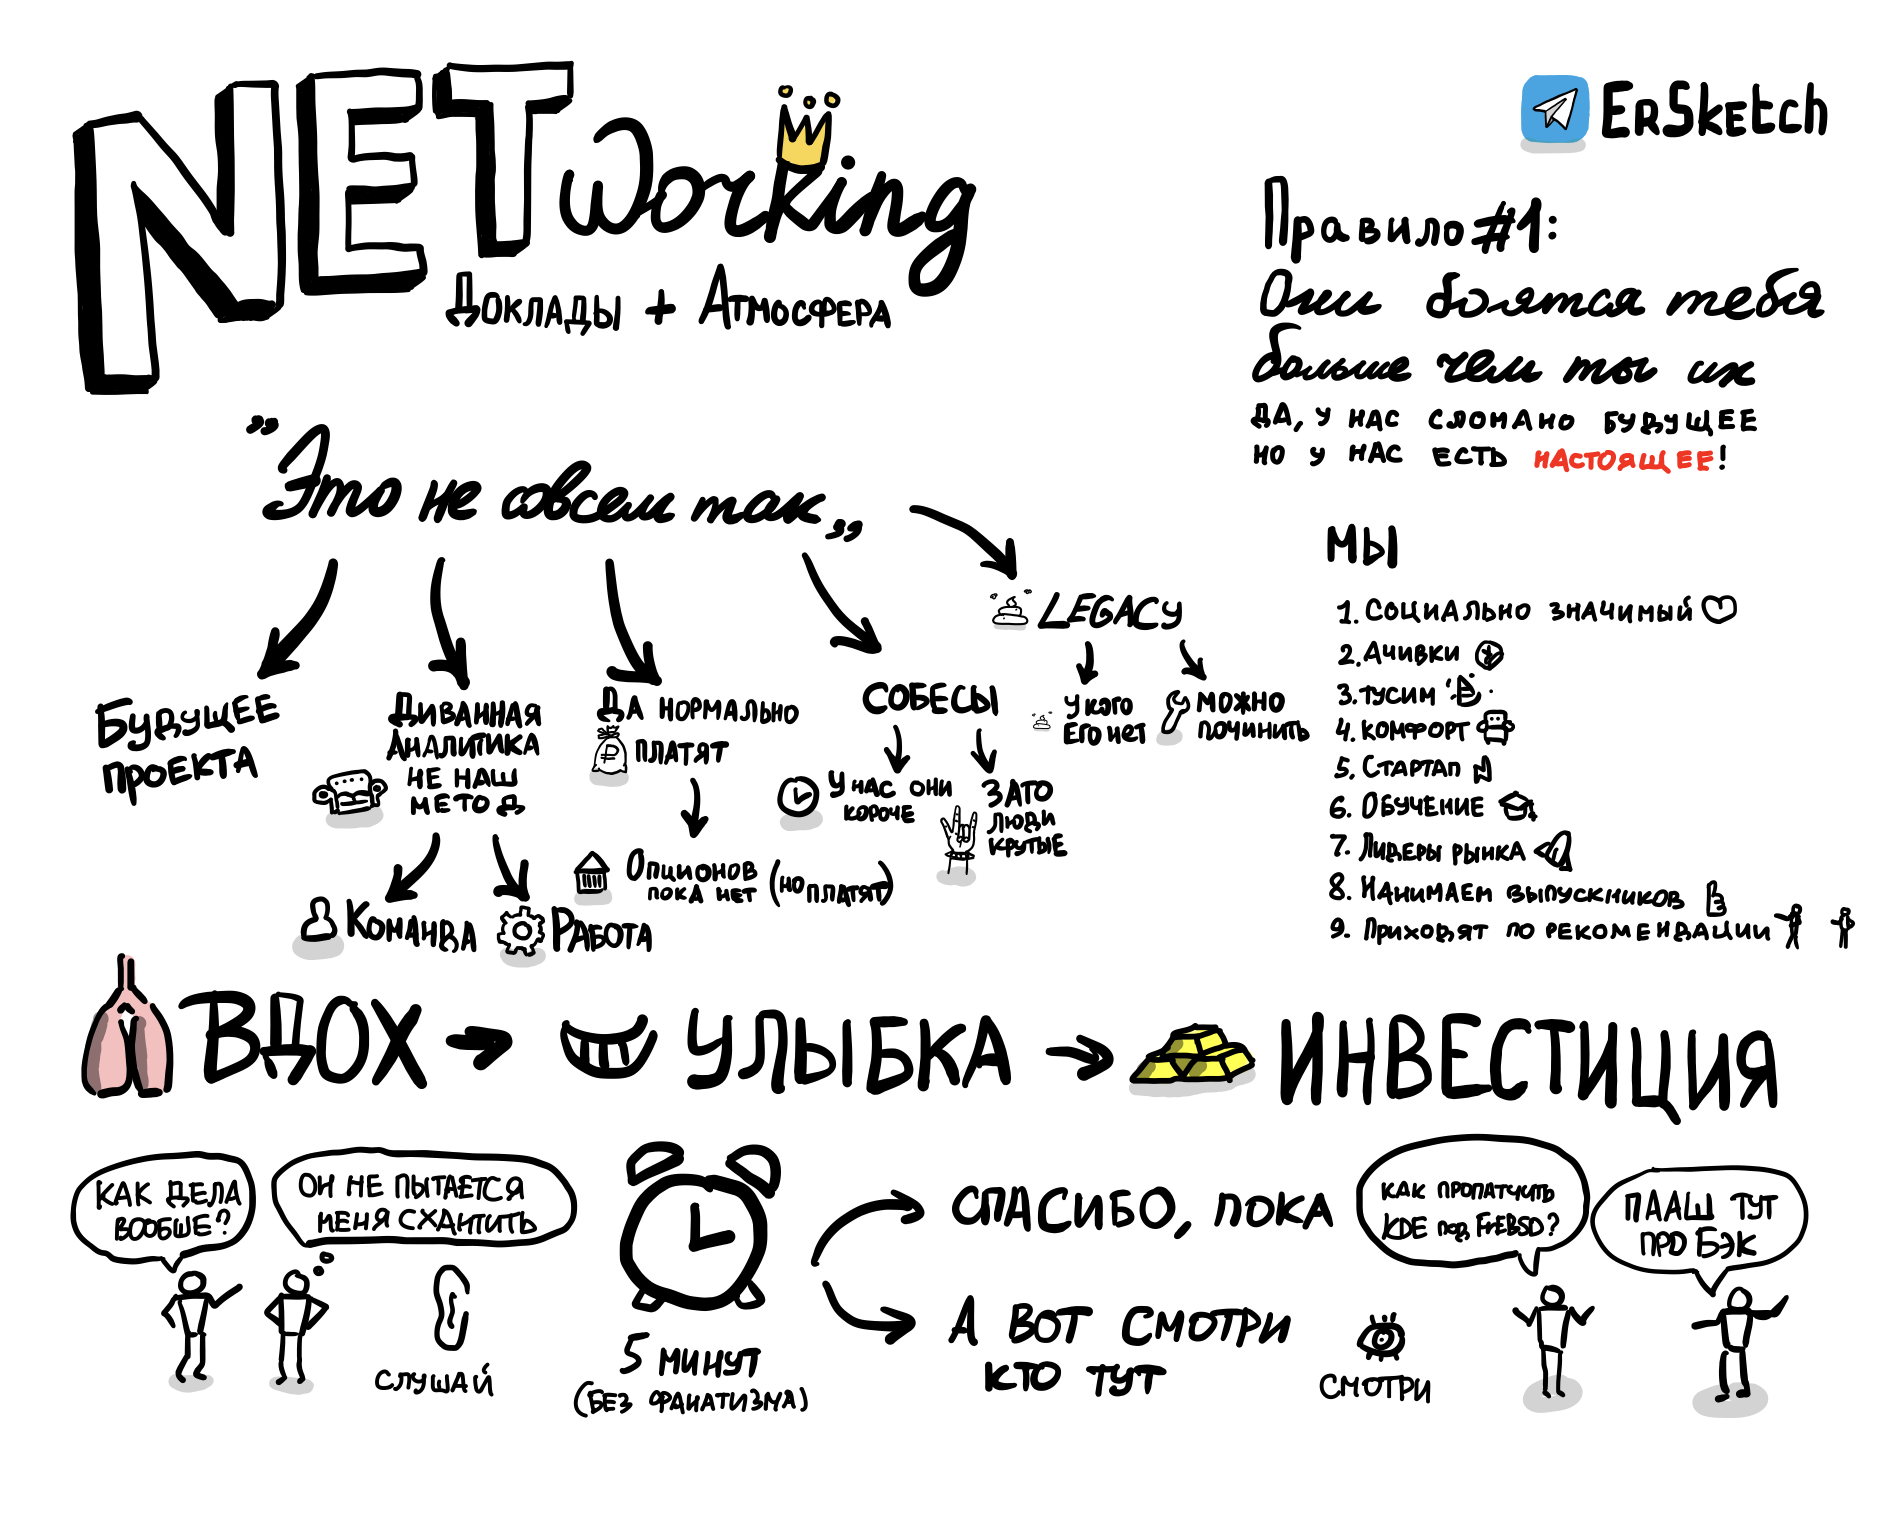 NETworking
Доклады + Атмосфера
ErSketch
Правило #1:
Они боятся тебя
больше чем ты их
Да, у нас сломано будущее
но у нас есть настоящее!
"Это не совсем так"
Будущее
проекта
Диванная
Аналитика
не наш
метод
Команда
Работа
Да нормально
₽ платят
Опционов
пока нет
(но платят)
Собесы
У нас они
короче
Зато
люди
крутые
LEGACY
У кого
его нет
можно
починить
МЫ
1. Социально значимый
2. Ачивки
3. Тусим
4. Комфорт
5. Стартап
6. Обучение
7. Лидеры рынка
8. Нанимаем выпускников
9. Приходят по рекомендации
ВДОХ → УЛЫБКА → ИНВЕСТИЦИЯ
КАК ДЕЛА
ВООБШЕ?
ОН НЕ ПЫТАЕТСЯ
МЕНЯ СХАНТИТЬ
СЛУШАЙ
5 минут
(без фанатизма)
СПАСИБО, ПОКА
А ВОТ СМОТРИ
КТО ТУТ
СМОТРИ
КАК ПРОПАТЧИТЬ
KDE под FreeBSD?
ПААШ ТУТ
ПРО БЭК